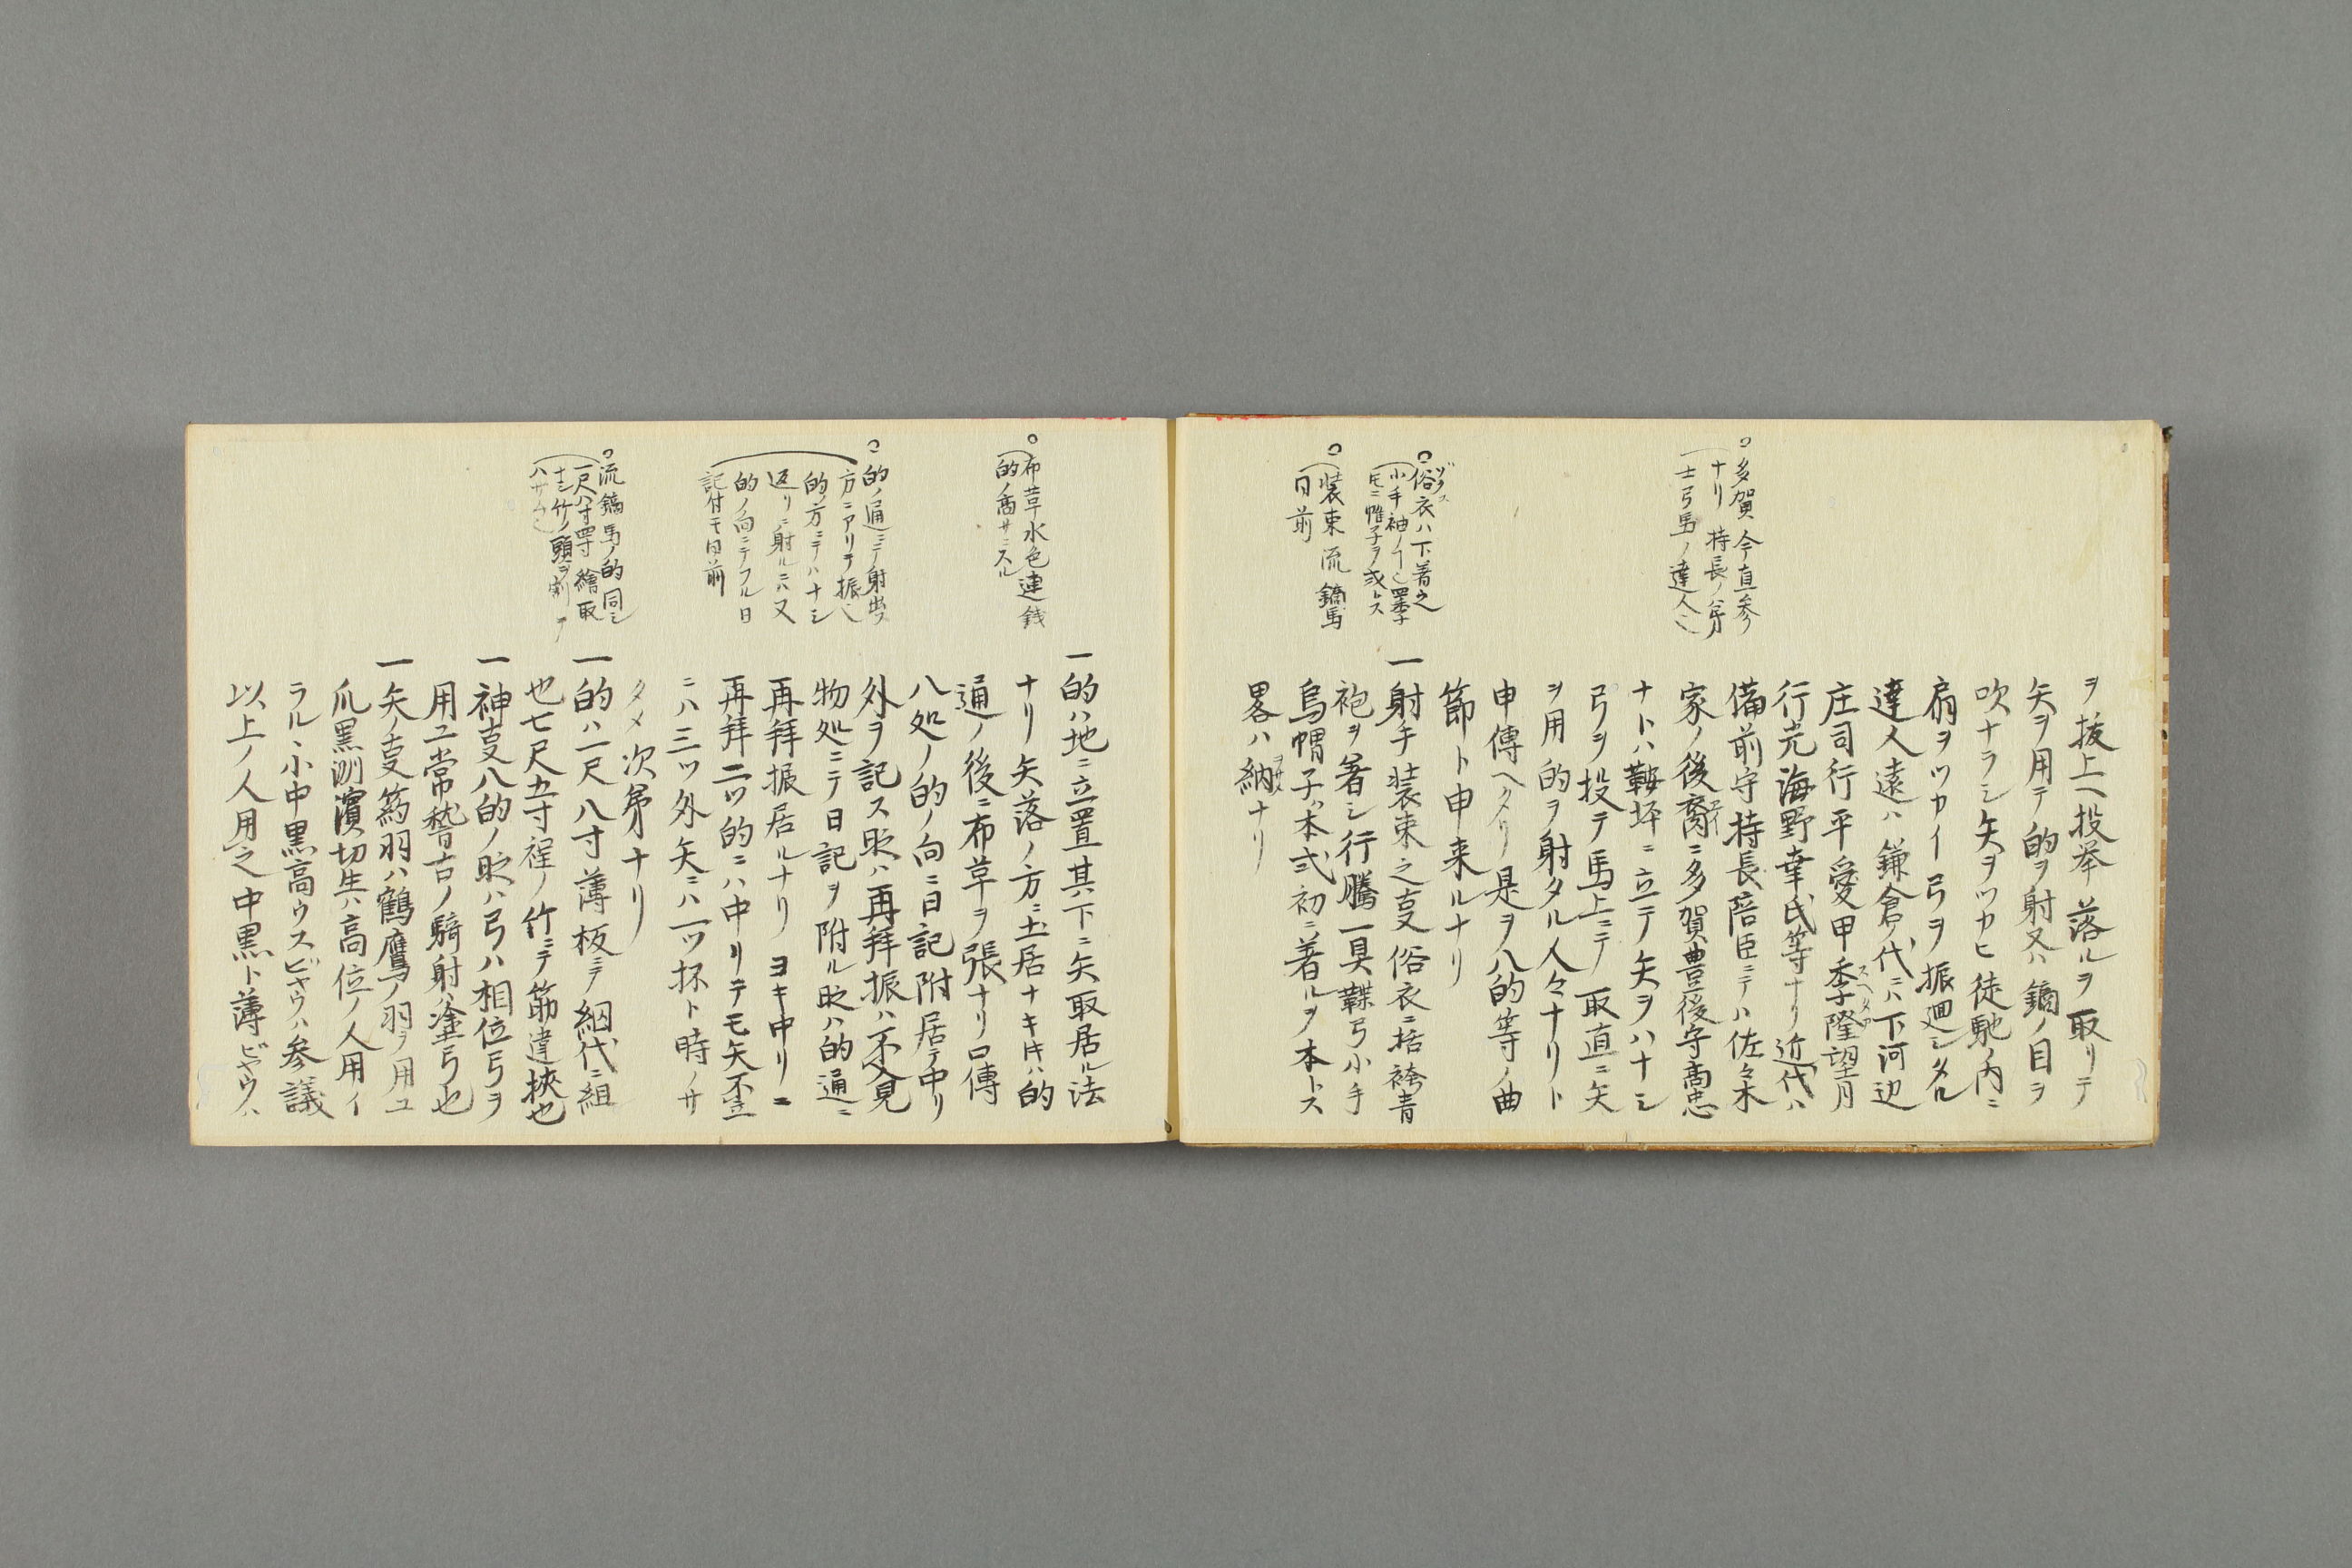 ヲ抜上ヘ投挙落ルヲ取リテ
矢ヲ用テ的ヲ射又ハ鏑ノ目ヲ
吹ナラシ矢ヲツカヒ徒馳ノ内ニ
扇ヲツカイ弓ヲ振廻シタル
達人遠ハ鎌倉ノ代ニハ下河辺
庄司行平愛甲季隆望月
行光海野幸氏等ナリ近代ハ
備前守持長陪臣ニテハ佐々木
家ノ後裔ニ多賀豊後守高忠
ナトハ鞍坪ニ立テ矢ヲハナシ
弓ヲ投テ馬上ニテ取直ニ矢
ヲ用的ヲ射タル人々ナリト
申傳ヘタリ是ヲ八的等ノ曲
節ト申来ルナリ
一射手装束之叓俗衣ニ括袴青
袍ヲ着シ行騰一具鞢弓小手
烏帽子ハ本弍初ニ着ルヲ本トス
畧ハ納ナリ
多賀今直参
ナリ持長ノ弟
士弓馬ノ達人也
俗衣ハ下着之
小手袖ノ
毛ニ帷子ヲ或トス
装束流鏑馬
同前
一的ハ地ニ立置其下ニ矢取居ル法
ナリ矢落ノ方ニ土居ナキ時ハ的
通ノ後ニ布草ヲ張ナリ口傳
八処ノ的ノ向ニ日記附居テ中リ
外ヲ記ス時ハ再拝振ハ不見
物処ニテ日記ヲ附ル時ハ的通ニ
再拝振居ルナリヨキ中リニ
再拝二ツ的ニハ中リテモ矢歪
ニハ三ツ外矢ニハ一ツ抔ト時ノサ
タメ次第ナリ
一的ハ一尺八寸薄板ニテ網代ニ組
也七尺五寸程ノ竹ニテ筋違挾也
一神叓八的ノ時ハ弓ハ相位弓ヲ
用ユ常稽古ノ騎射ハ塗弓也
一矢ノ叓篛羽ハ鶴鷹ノ羽ヲ用ユ
爪黒渕濱切生ハ高位ノ人用イ
ラル小中黒高ウスビヤウハ参議
以上ノ人用之中黒ト薄ビヤウハ
布草水色連銭
的ノ高サニスル
的ノ通ニテ射出ス
方ニアリテ振ヘ
的ノ方ニテハナシ
返リニ射ルニハ又
的ノ向ニテフル日
記付モ同前
流鏑馬ノ的同シ
一尺八寸四寸繪取
ナシ竹ノ頭ヲ割テ
ハサム也